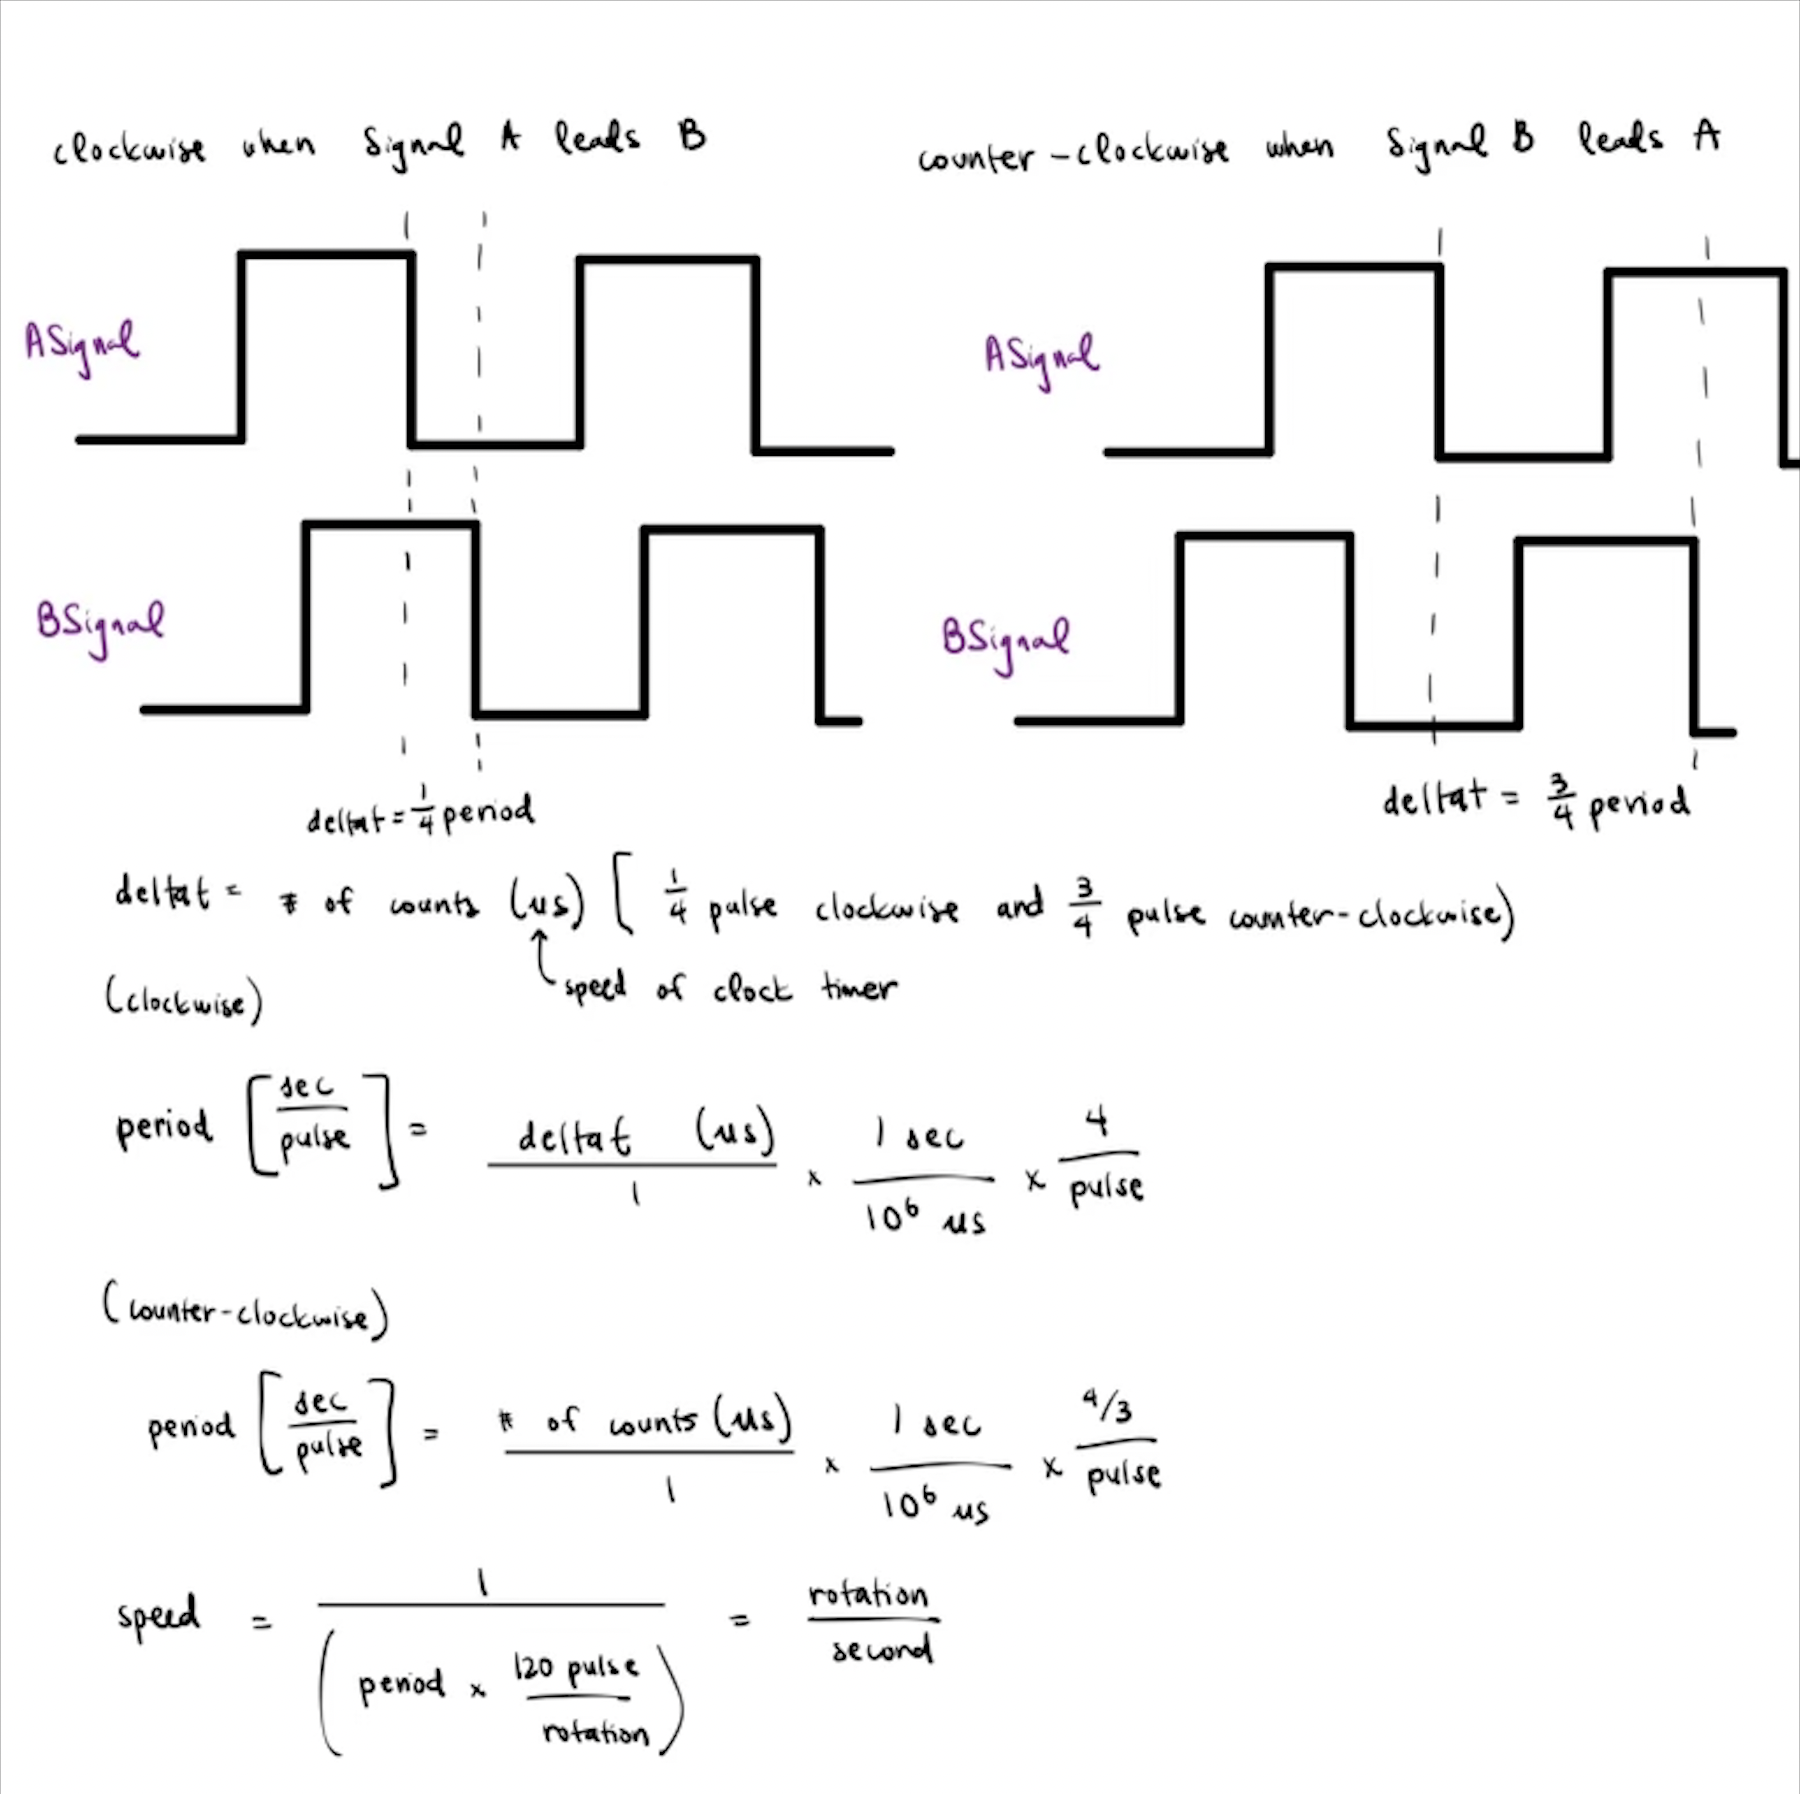 clockwise when Signal A leads B
counter-clockwise when Signal B leads A
ASignal
ASignal
BSignal
BSignal
deltat = 1/4 period
deltat = 3/4 period
deltat = # of counts (us) [ 1/4 pulse clockwise and 3/4 pulse counter-clockwise)
speed of clock timer
(clockwise)
period [sec/pulse] = deltat (us)/1 x 1 sec/10^6 us x 4/pulse
(counter-clockwise)
period [sec/pulse] = # of counts (us)/1 x 1 sec/10^6 us x 4/3/pulse
speed = 1/(period x 120 pulse/rotation) = rotation/second